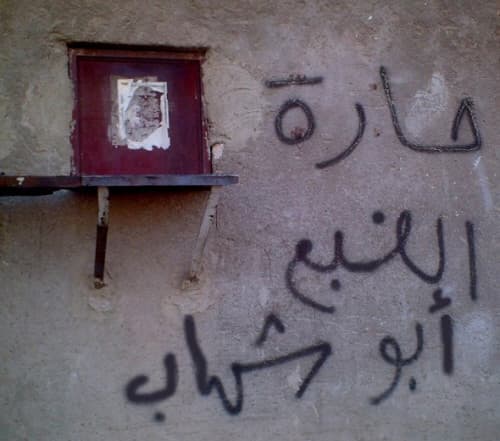 حارة
الضبع
أبو شهاب